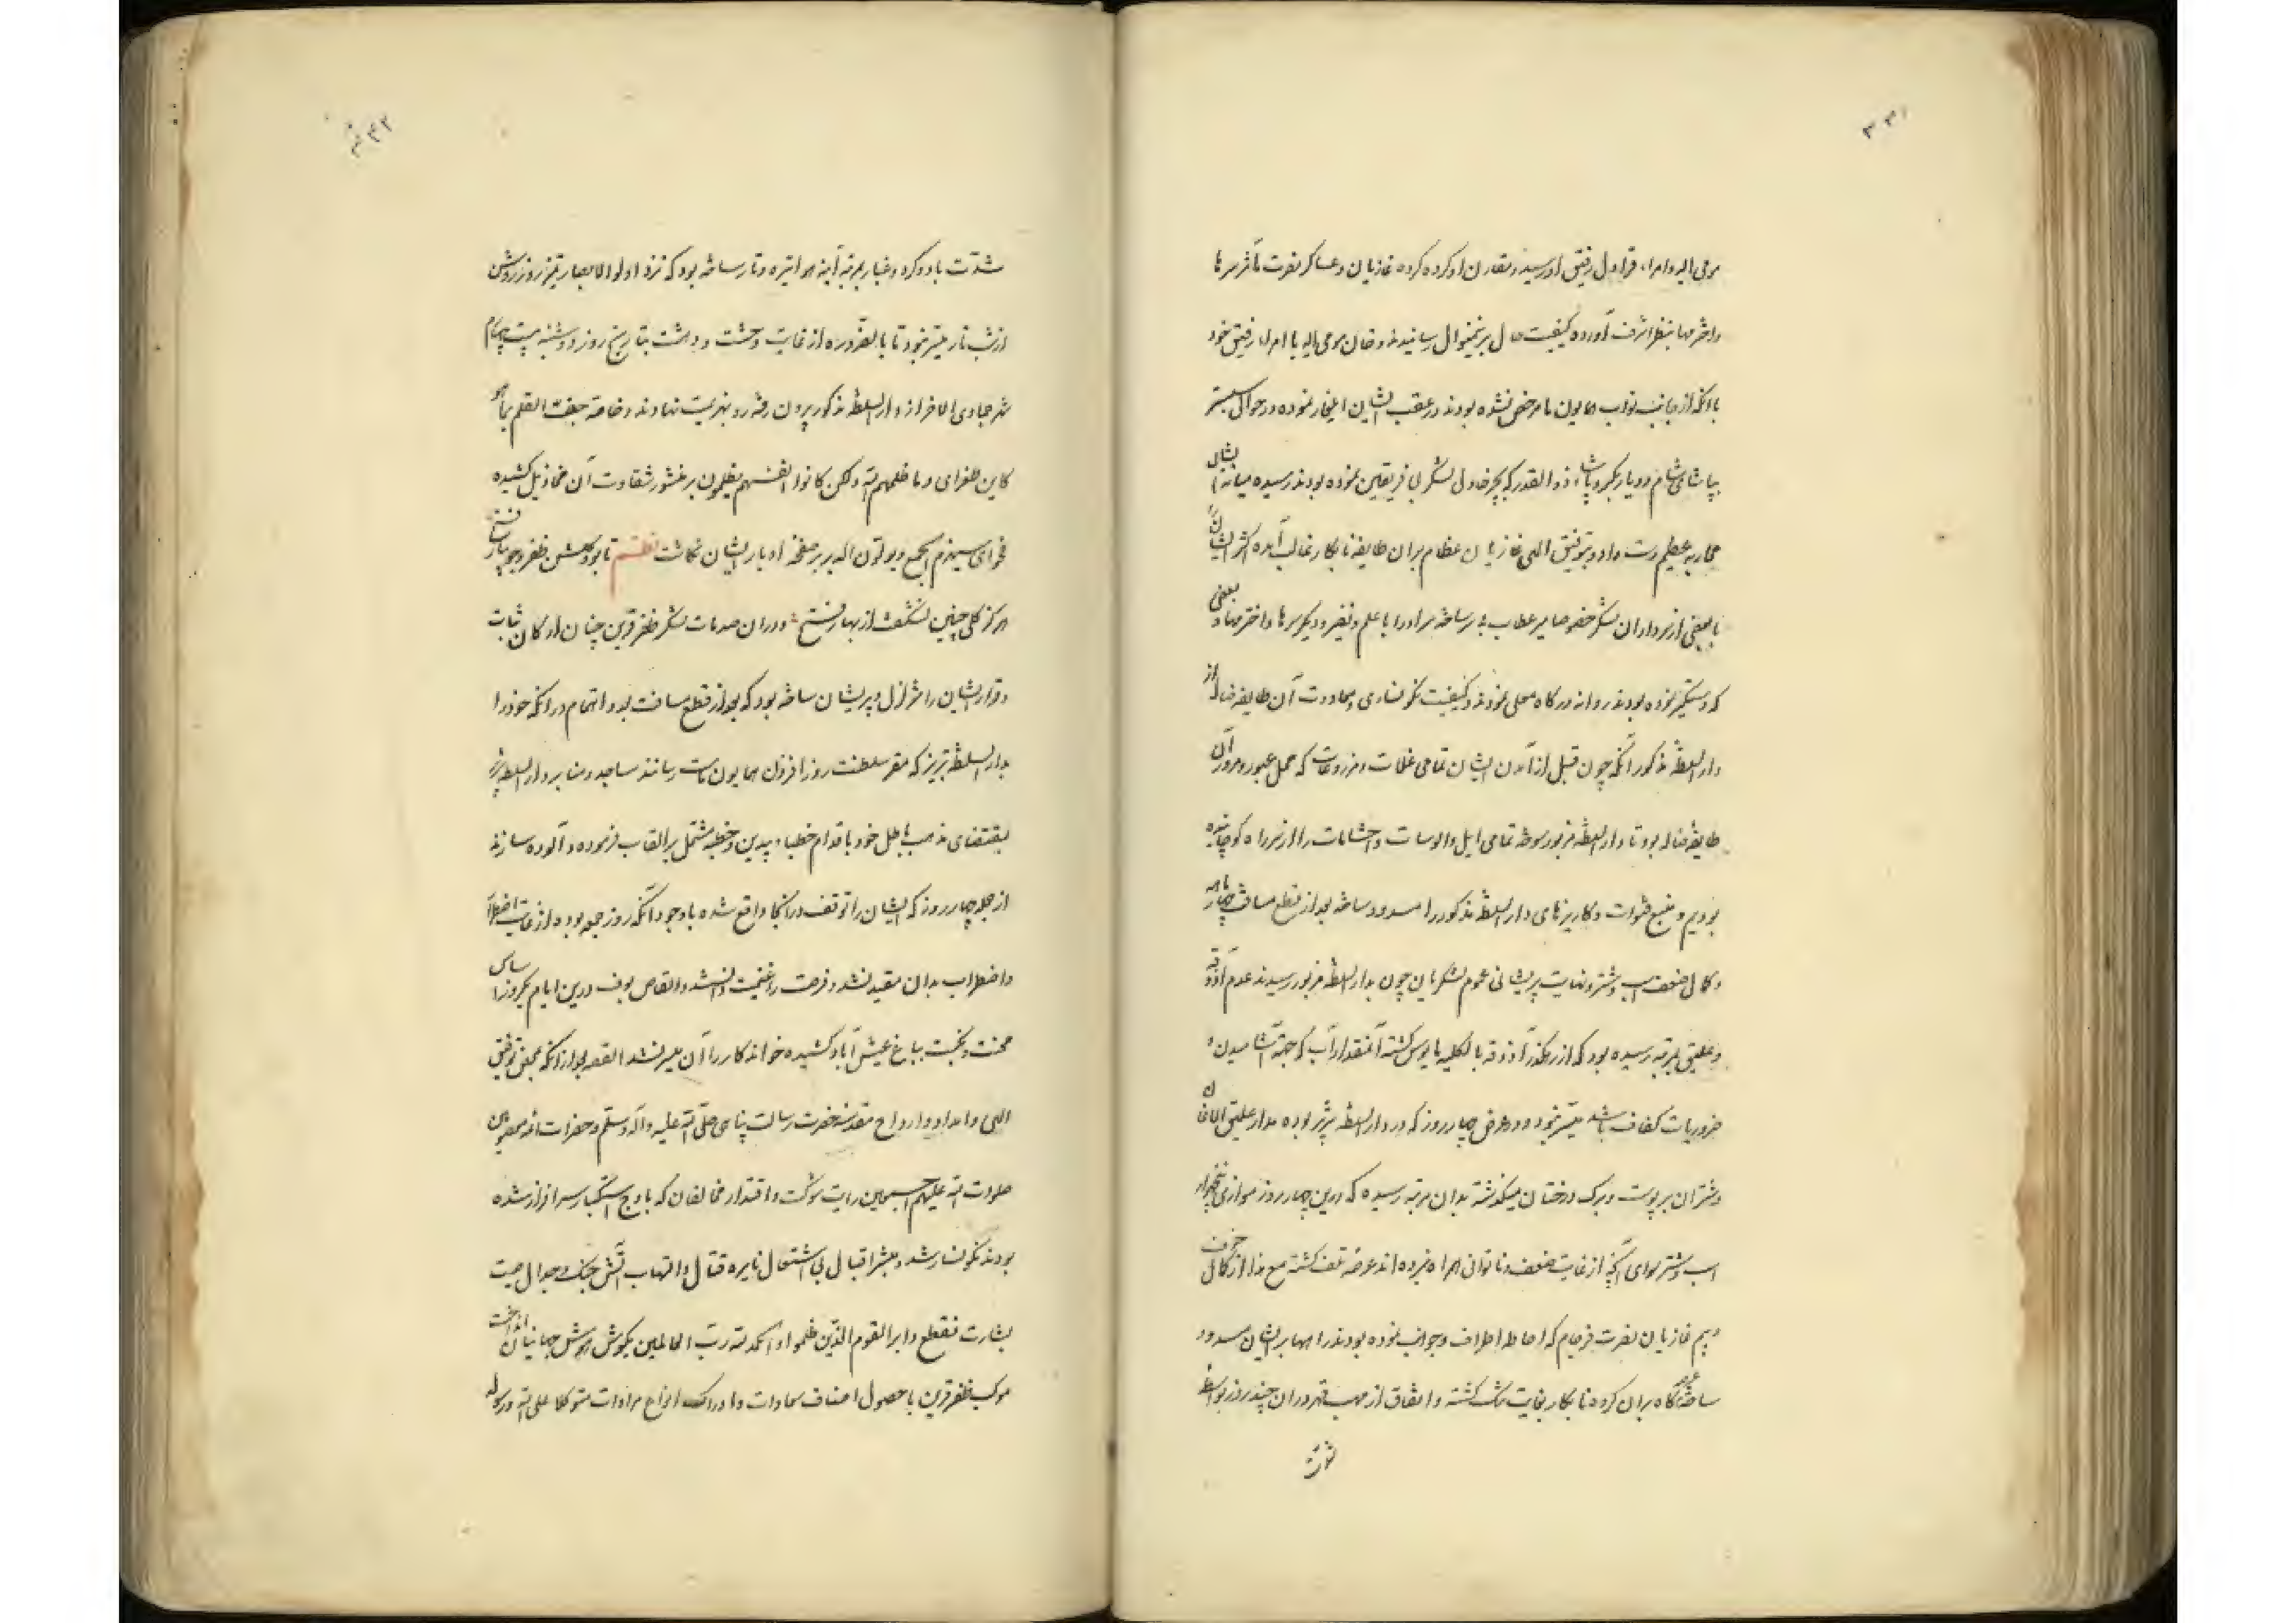 ۳۳۱
مومی الیه و امراء قراول رفیق او رسید و مقارن او کرده کرده غازیان و عساکر نصرت مآثر سرها
و اخترمها بنظر اشرف آورده کیفیت حال برینمنوال رسانیدند و خان مومی الیه با امراء رفیق خود
با آنکه از جانب نواب همایون ما مرخص نشده بودند در عقب ایشان ایلغار نموده در حوالی
بپاشای شام و دیار بکر و پاشاء ذوالقدر که بچرخاول لشکر بی فریقین نموده بودند رسیده میانه ایشان
محاربه عظیم دست داد و بتوفیق الهی غازیان عظام بران طایفه نابکار غالب آمده اکثر ایشانرا
با بعضی از سرداران لشکر خصوصا میر عطاب بی سر ساخته سر او را با علم و نفیر و دیگر سرها و اخترمها و بعضی
که دستگیر نموده بودند روانه درگاه معلی نمودند و کیفیت نکونساری و معاودت آن طایفه ضاله از
دار السلطنه مذکور آنکه چون قبل از آمدن ایشان تمامی غلات و مزروعات که محل عبور و مرور آن
طایفه ضاله بود تا دار السلطنه مزبور سوخته تمامی ایل و الوسات و احشامات را از سر راه کوچانیده
بودیم و منبع قنوات و کاریزهای دار السلطنه مذکور را مسدود ساخته بعد از قطع مسافت چهار ماهه
و کمال ضعف اسب و شتر و نهایت پریشانی عموم لشکریان چون بدار السلطنه مزبور رسیدند عدم آذوقه
و علیق بمرتبه رسیده بود که از رهگذر آذوقه بالکلیه مایوس گشته آنمقدار آب که جهته آشامیدن و
ضروریات کفاف باشد میسر نبود و در عرض چهار روز که در دار السلطنه تبریز بوده مدار علیق الاغان
و شتران بر پوست و برک درختان میکذشته بدان مرتبه رسیده که درین چهار روز موازی پنجهزار
اسب و شتر سوای آنچه از غایت ضعف و ناتوانی همراه نبرده اند عرضه تلف گشته مع هذا از کمال خوف
و بیم غازیان نصرت فرجام که احاطه اطراف و جوانب نموده بودند راهها بر ایشان مسدود
ساخته عرصه گاه بران گروه نابکار بغایت تنک گشته و اتفاق از مهب قهر در آن چند روز بواسطه
شدت
۳۳۲
شدت باد و کرد و غبار بمرتبه آینه هوا تیره و تار ساخته بود که نزد اولوالابصار تمیز روز روشن
از شب تار میسر نبود تا بالضروره از غایت وحشت و دهشت بتاریخ روز دوشنبه بیست پنجم
شهر جمادی الاخر از دار السلطنه مذکور بیرون رفته رو بهزیمت نهادند و خامه جفت القلم بما هو
کاین طغرای و ما ظلمهم الله ولکن کانوا انفسهم یظلمون بر منشور شقاوت آن مخاذیل کشیده
فحوای سیهزم الجمع و یولون الدبر بر صفحه ادبار ایشان نکاشت نظم تا بود گلشن ظفر و جویبار فتح
هرکز گلی چنین نشگفت از بهار فتح و در ان صدمات لشکر ظفر قرین چنان ارکان ثبات
و قرار ایشان را متزلزل و پریشان ساخته بود که بعد از قطع مسافت بعد و اتهام در آنکه خود را
بدار السلطنه تبریز که مقر سلطنت روز افزون همایون ماست رسانند مساجد و منابر دار السلطنه تبریز
بمقتضای مذهب باطل خود باقدام خطباء بیدین و خطبه مشتمل بر القاب فرموده و آلوده سازند
از جمله چهار روز که ایشان را توقف در آنجا واقع شده با وجود آنکه روز جمعه بوده از غایت اضطرار
و اضطراب بدان مقید نشد و فرصت را غنیمت دانسته و القاص بوف درین ایام یکروز اساس
محنت و نکبت بباغ عیش آباد کشیده خواندکار را آن میسر نشد القصه بعد از آنکه بمحض توفیق
الهی و امداد و ارواح مقدسه حضرت رسالت پناهی صلی الله علیه و آله و سلم و حضرات ائمه معصومین
صلوات الله علیهم اجمعین رایت شوکت و اقتدار مخالفان که باوج استکبار سرافراز شده
بودند نکونسار شد و مبشر اقبال بی اشتعال نایره قتال و التهاب آتش جنک و جدال صیت
بشارت فقطع دابر القوم الذین ظلموا و الحمد لله رب العالمین بگوش هوش جهانیان انداخت
موکب ظفر قرین با حصول اصناف سعادات و ادراک انواع مرادات متوکلا علی الله و رسوله